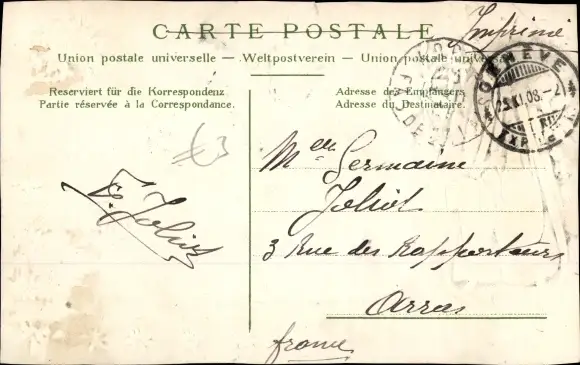 CARTE POSTALE
Imprimé
Union postale universelle — Weltpostverein — Union postale universelle
Reserviert für die Korrespondenz
Partie réservée à la Correspondance.
Adresse des Empfängers
Adresse du Destinataire.
GENÈVE
25.XI.08.-2
EXP.
€3
Melle Germaine
Joliot
3 Rue des Rapporteurs
Arras
france
G. Joliot